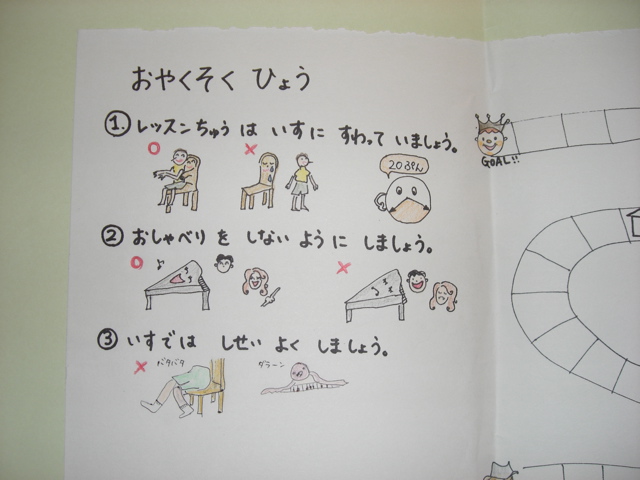 おやくそく ひょう
① レッスンちゅう は いすに すわって いましょう。
20ぷん
GOAL!!
② おしゃべり を しない ように しましょう。
③ いすでは しせい よく しましょう。
バタバタ
グラーン